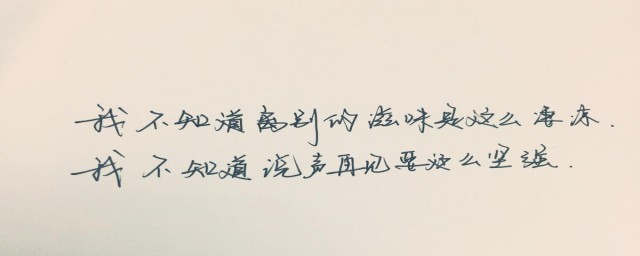 我不知道离别的滋味是这么凄凉.
我不知道说声再见要这么坚强.